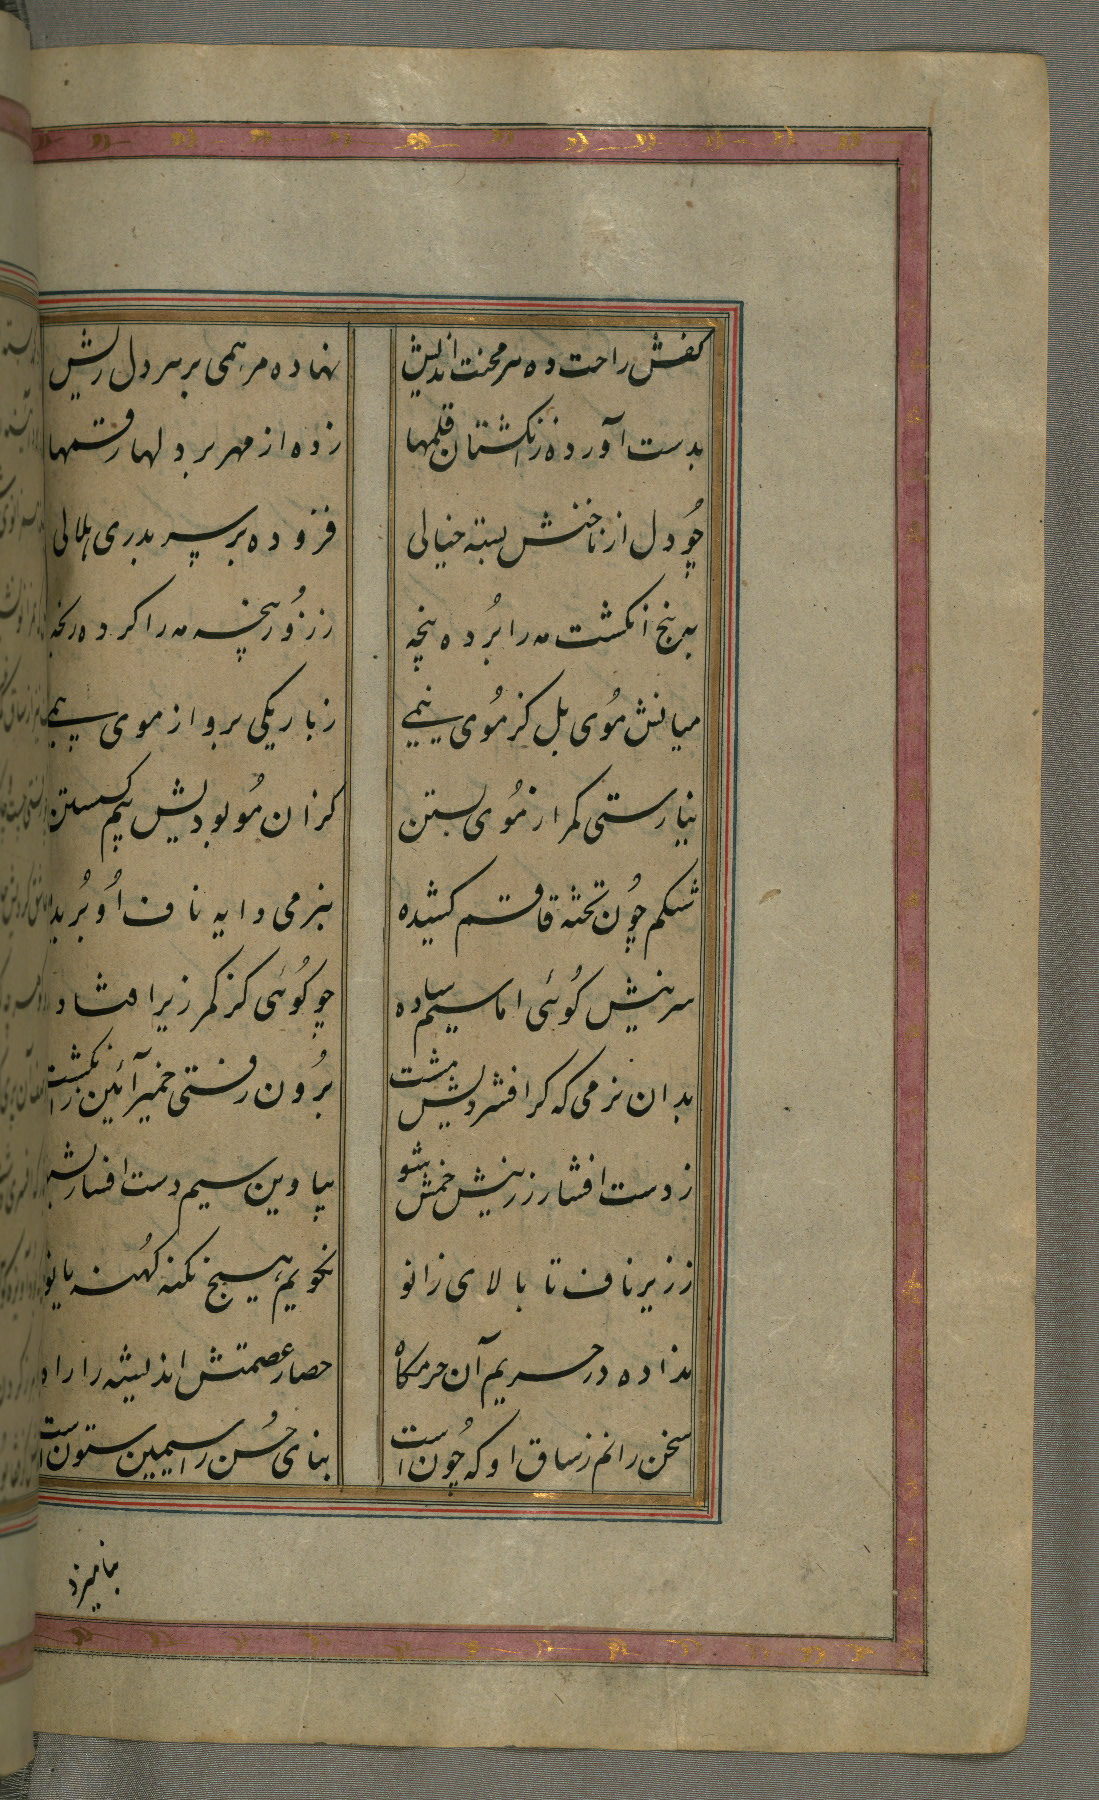 کفش راحت ده هر محنت اندیش نهاده مرهمی بر هر دل ریش
بدست آورده ز انکشتان قلمها زده از مهر بر دلها رقمها
چو دل از ناخنش بسته خیالی فزوده بر سر بدری هلالی
به پنج انکشت مه را برده پنجه ز زور پنجه مه را کرده رنجه
میانش موی بل کز موی نیمی ز باریکی برو از موی بیمی
نیارستی کمر از موی بستن کز ان مو بودیش بیم کسستن
شکم چون تخته قاقم کشیده بنرمی دایه ناف او بریده
سرینش کوئی اما سیم ساده چو کوئی کز کمر زیر افتاده
بدان نرمی که کر افشردیش مشت برون رفتی خمیر آئین ز انکشت
ز دست افشار زرینش خمش شو بیا وین سیم دست افشار
ز زیر ناف تا بالای زانو نکویم هیچ نکته کهنه یا نو
نداده در حریم آن حرمکاه حصار عصمتش اندیشه را راه
سخن رانم ز ساق او که چون است بنای حسن را سیمین ستون است
بنامیزد